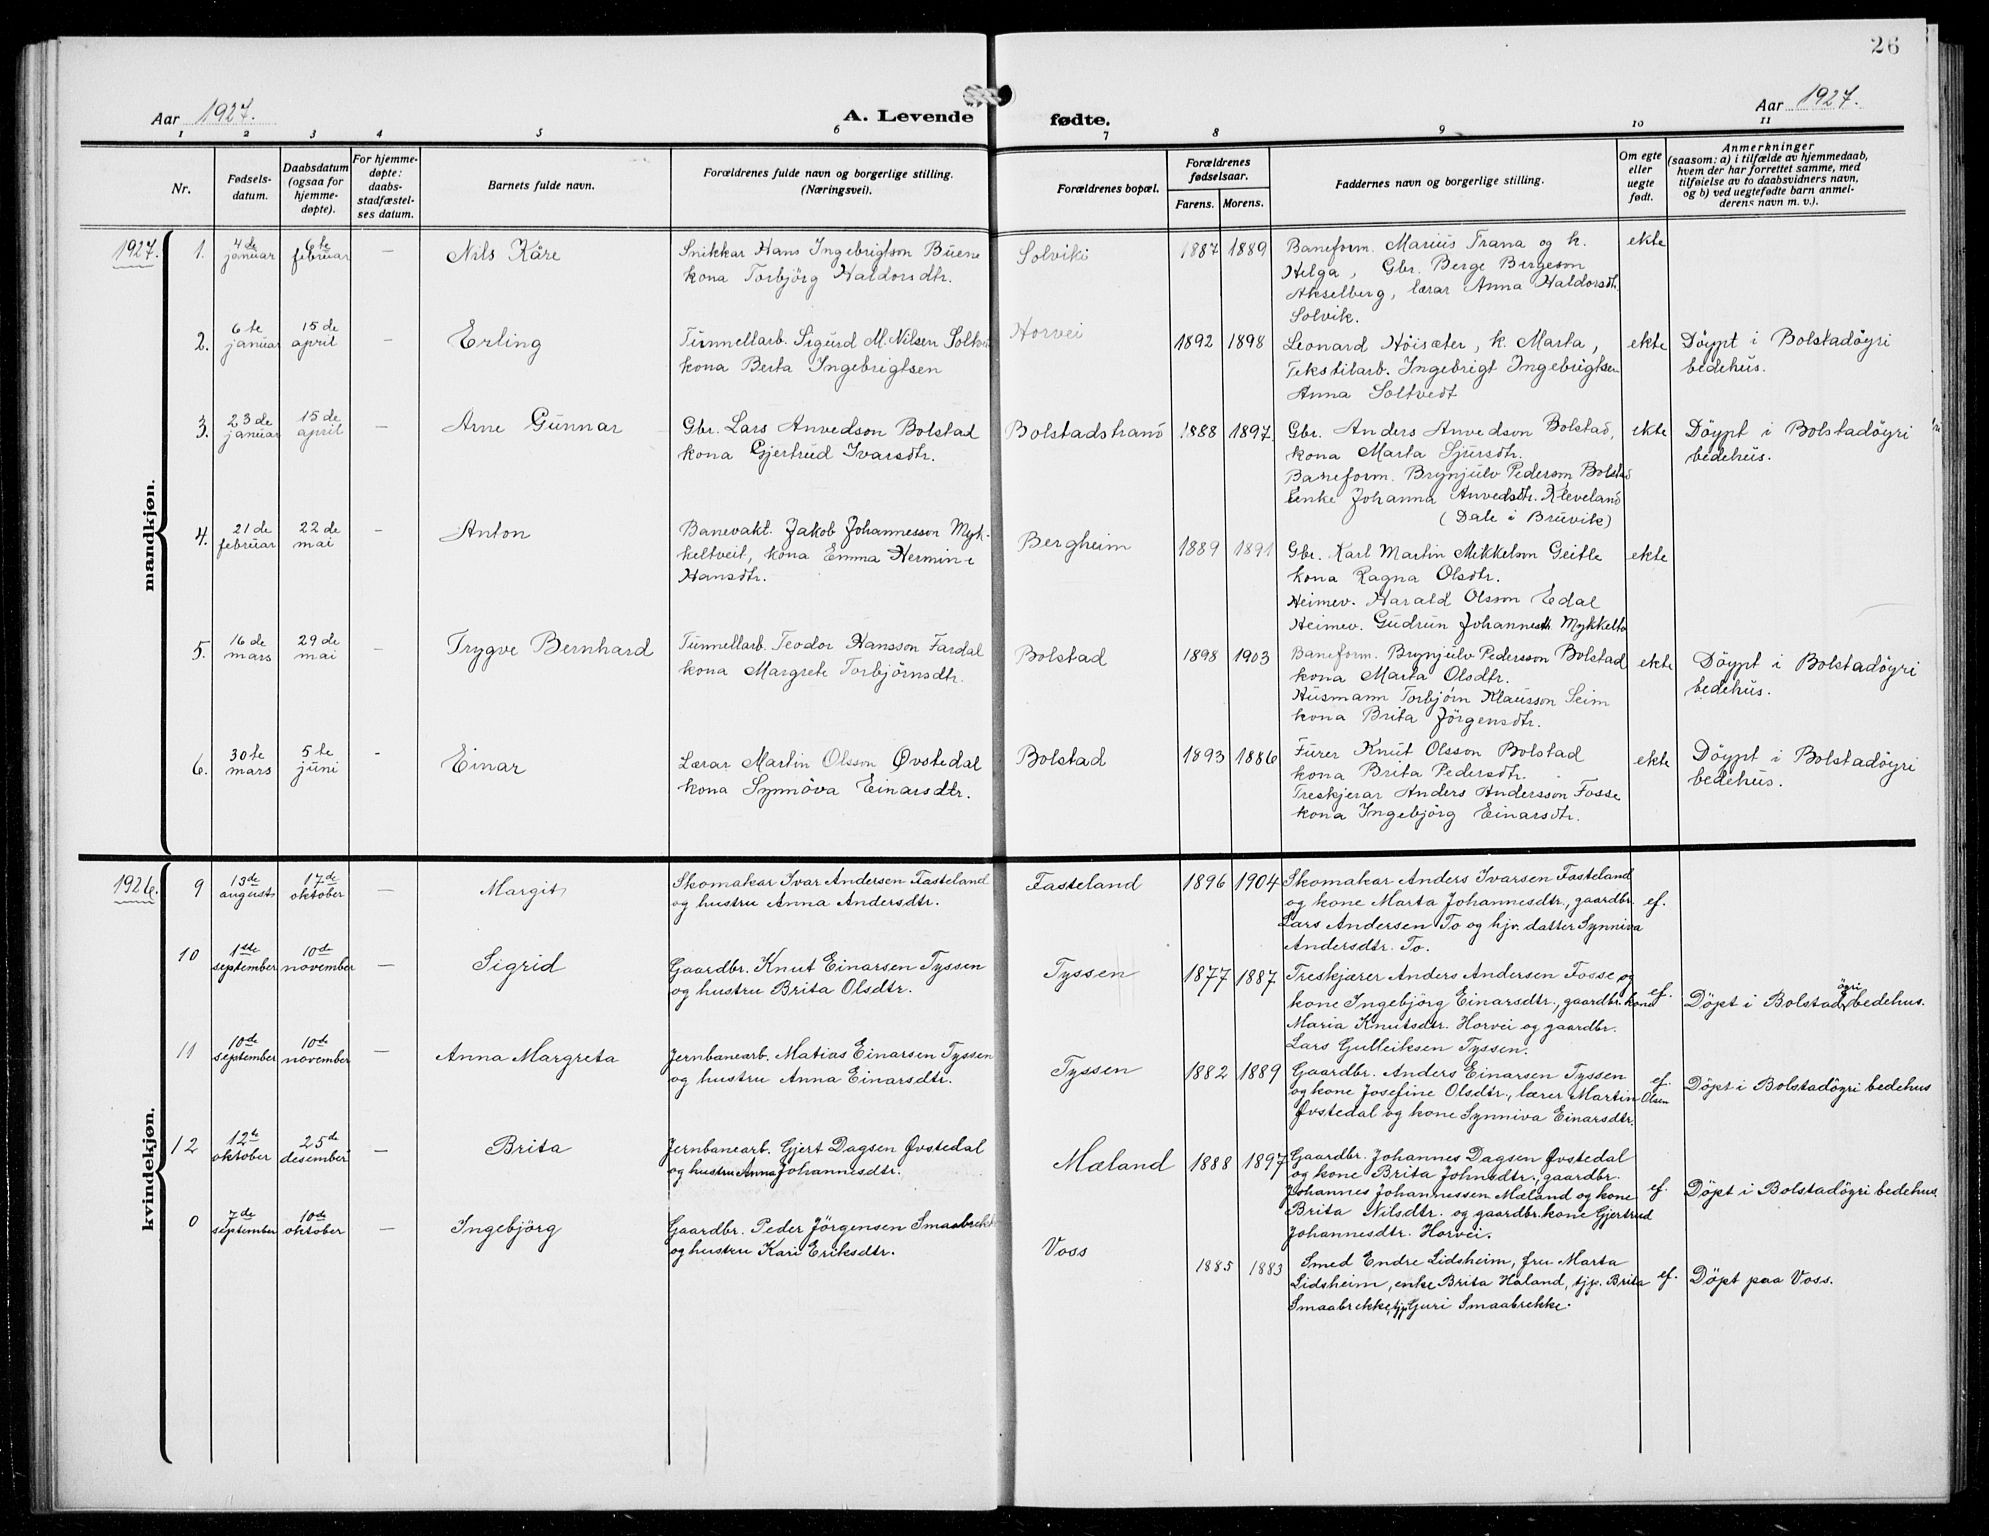 26
Aar 1927.
A. Levende
fødte.
Aar 1927.
1 2 3 4 5 6 7 8 9 10 11
Nr.
Fødsels-
datum.
Daabsdatum
(ogsaa for
hjemme-
døpte).
For hjemme-
døpte:
daabs-
stadfæstel-
ses datum.
Barnets fulde navn.
Forældrenes fulde navn og borgerlige stilling.
(Næringsvei).
Forældrenes bopæl.
Forældrenes
fødselsaar.
Farens. Morens.
Faddernes navn og borgerlige stilling.
Om egte
eller
uegte
født.
Anmerkninger
(saasom: a) i tilfælde av hjemmedaab,
hvem der har forrettet samme, med
tilføielse av to daabsvidners navn,
og b) ved uegtefødte barn anmel-
derens navn m. v.).
mandkjøn.
1927.
1.
4de
januar
6te
februar
—
Nils Kåre
Snikkar Hans Ingebrigtson Buene
kona Torbjörg Haldorsdtr.
Solviki
1887 1889
Baneform. Marius Trana og k.
Helga, Gbr. Berge Bergeson
Akselberg, lærar Anna Haldorsdt.
Solvik.
ekte
2.
6te
januar
15de
april
—
Erling
Tunnellarb. Sigurd M. Nilsen Soltve
kona Berta Ingebrigtsen
Horvei
1892 1898
Leonard Höisæter, k. Marta,
Tekstilarb. Ingebrigt Ingebrigtsen
Anna Soltvedt
ekte
Döypt i Bolstadöyri
bedehus.
3.
23de
januar
15de
april
—
Arne Gunnar
Gbr. Lars Anvedson Bolstad
kona Gjertrud Ivarsdtr.
Bolstadstrand
1888 1897.
Gbr. Anders Anvedson Bolstad,
kona Marta Sjursdtr.
Baneform. Brynjulv Pederson Bolstad
Enke Johanna Anvedsdtr. Kleveland
(Dale i Bruvik)
ekte
Döypt i Bolstadöyri
bedehus.
4.
21de
februar
22de
mai
—
Anton
Banevakt. Jakob Johannesson Myk-
keltveit, kona Emma Hermine
Hansdtr.
Bergheim
1889 1891
Gbr. Karl Martin Mikkelson Geitle
kona Ragna Olsdtr.
Heimev. Harald Olson Edal
Heimev. Gudrun Johannesdt. Mykkeltv
ekte
5.
16de
mars
29de
mai
—
Trygve Bernhard
Tunnellarb. Teodor Hansson Fardal
kona Margrete Torbjörnsdtr.
Bolstad
1898 1903
Baneform. Brynjulv Pedersson Bolstad
kona Marta Olsdtr.
Husmann Torbjörn Klausson Seim
kona Brita Jörgensdtr.
ekte
Döypt i Bolstadöyri
bedehus.
6.
30te
mars
5te
juni
-
Einar
Lærar Martin Olsson Øvstedal
kona Synnöva Einarsdtr.
Bolstad
1893 1886
Furer Knut Olsson Bolstad
kona Brita Pedersdtr.
Treskjerar Anders Andersson Fosse
kona Ingebjörg Einarsdtr.
ekte
Döypt i Bolstadöyri
bedehus.
kvindekjøn.
1926.
9
13de
august
17de
oktober
—
Margit
Skomakar Ivar Andersen Fasteland
og hustru Anna Andersdtr.
Fasteland
1896 1904
Skomakar Anders Ivarsen Fasteland
og kone Marta Johannesdtr., gaardbr.
Lars Andersen To og hjv. datter Synniva
Andersdtr. To.
ef.
10
1ste
september
10de
november
—
Sigrid
Gaardbr. Knut Einarsen Tyssen
og hustru Brita Olsdtr.
Tyssen
1877 1887
Treskjærer Anders Andersen Fosse og
kone Ingebjörg Einarsdtr., gaardbr. kone
Maria Knutsdtr. Horvei og gaardbr.
Lars Gulleiksen Tyssen.
ef.
Döpt i Bolstadöyri bedehus.
11
10de
september
10de
november
—
Anna Margreta
Jernbanearb. Matias Einarsen Tyssen
og hustru Anna Einarsdtr.
Tyssen
1882 1889
Gaardbr. Anders Einarsen Tyssen
og kone Josefine Olsdtr., lærer Martin Olsen
Øvstedal og kone Synniva Einarsdtr.
ef.
Döpt i Bolstadöyri bedehus
12
12te
oktober
25de
desember
—
Brita
Jernbanearb. Gjert Dagsen Øvstedal
og hustru Anna Johannesdtr.
Mæland
1888 1897
Gaardbr. Johannes Dagsen Øvstedal
og kone Brita Johnsdtr., gaardbr.
Johannes Johannessen Mæland og kone
Brita Nilsdtr. og gaardbr. kone Gjertrud
Johannesdtr. Horvei.
ef.
Döpt i Bolstadöyri bedehus.
0
7de
september
10de
oktober
—
Ingebjörg
Gaardbr. Peder Jörgensen Smaabrekke
og hustru Kari Eriksdtr.
Voss
1885 1883
Smed Endre Lidsheim, fru Marta
Lidsheim, enke Brita Haland, tjp. Brita
Smaabrekke, tjp Guri Smaabrekke.
ef.
Döpt paa Voss.